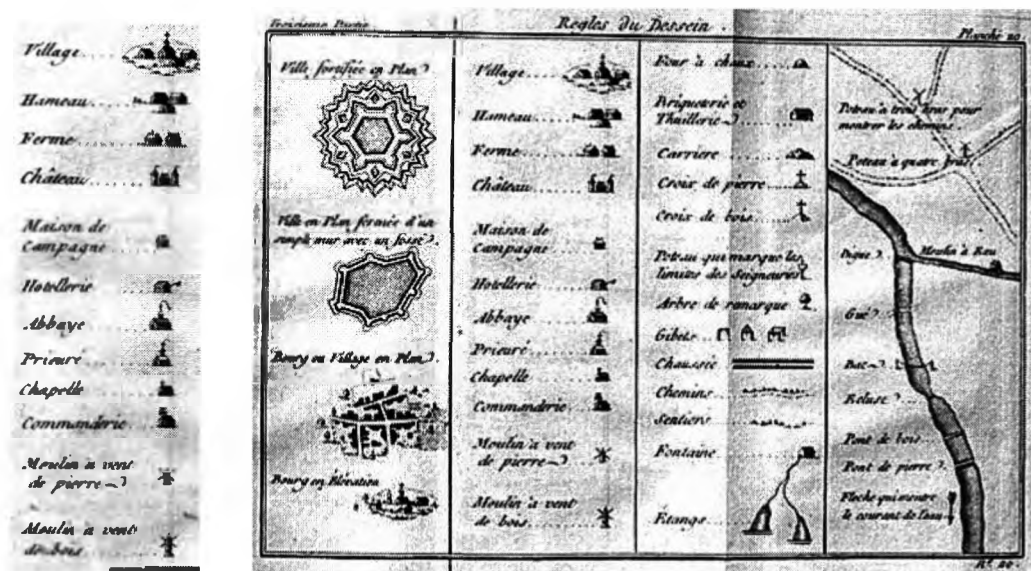 Village
Hameau
Ferme
Château
Maison de
Campagne
Hotellerie
Abbaye
Prieuré
Chapelle
Commanderie
Moulin a vent
de pierre
Moulin a vent
de bois
Troisieme Partie
Regles du Dessein.
Planche 20.
Ville fortifiée en Plan
Ville en Plan fermée d'un
simple mur avec un fossé.
Bourg ou Village en Plan
Bourg en Élévation
Village
Hameau
Ferme
Château
Maison de
Campagne
Hotellerie
Abbaye
Prieuré
Chapelle
Commanderie
Moulin a vent
de pierre
Moulin a vent
de bois
Four a chaux
Briqueterie et
Thuillerie
Carriere
Croix de pierre
Croix de bois
Poteau qui marque les
limites des Seigneuries
Arbre de remarque
Gibets
Chaussée
Chemins
Sentiers
Fontaine
Étangs
Poteau a trois bras pour
montrer les chemins.
Poteau a quatre bras
Digue
Moulin à Eau
Gué
Bac
Ecluse
Pont de bois
Pont de pierre
Fleche qui montre
le courant de l'eau